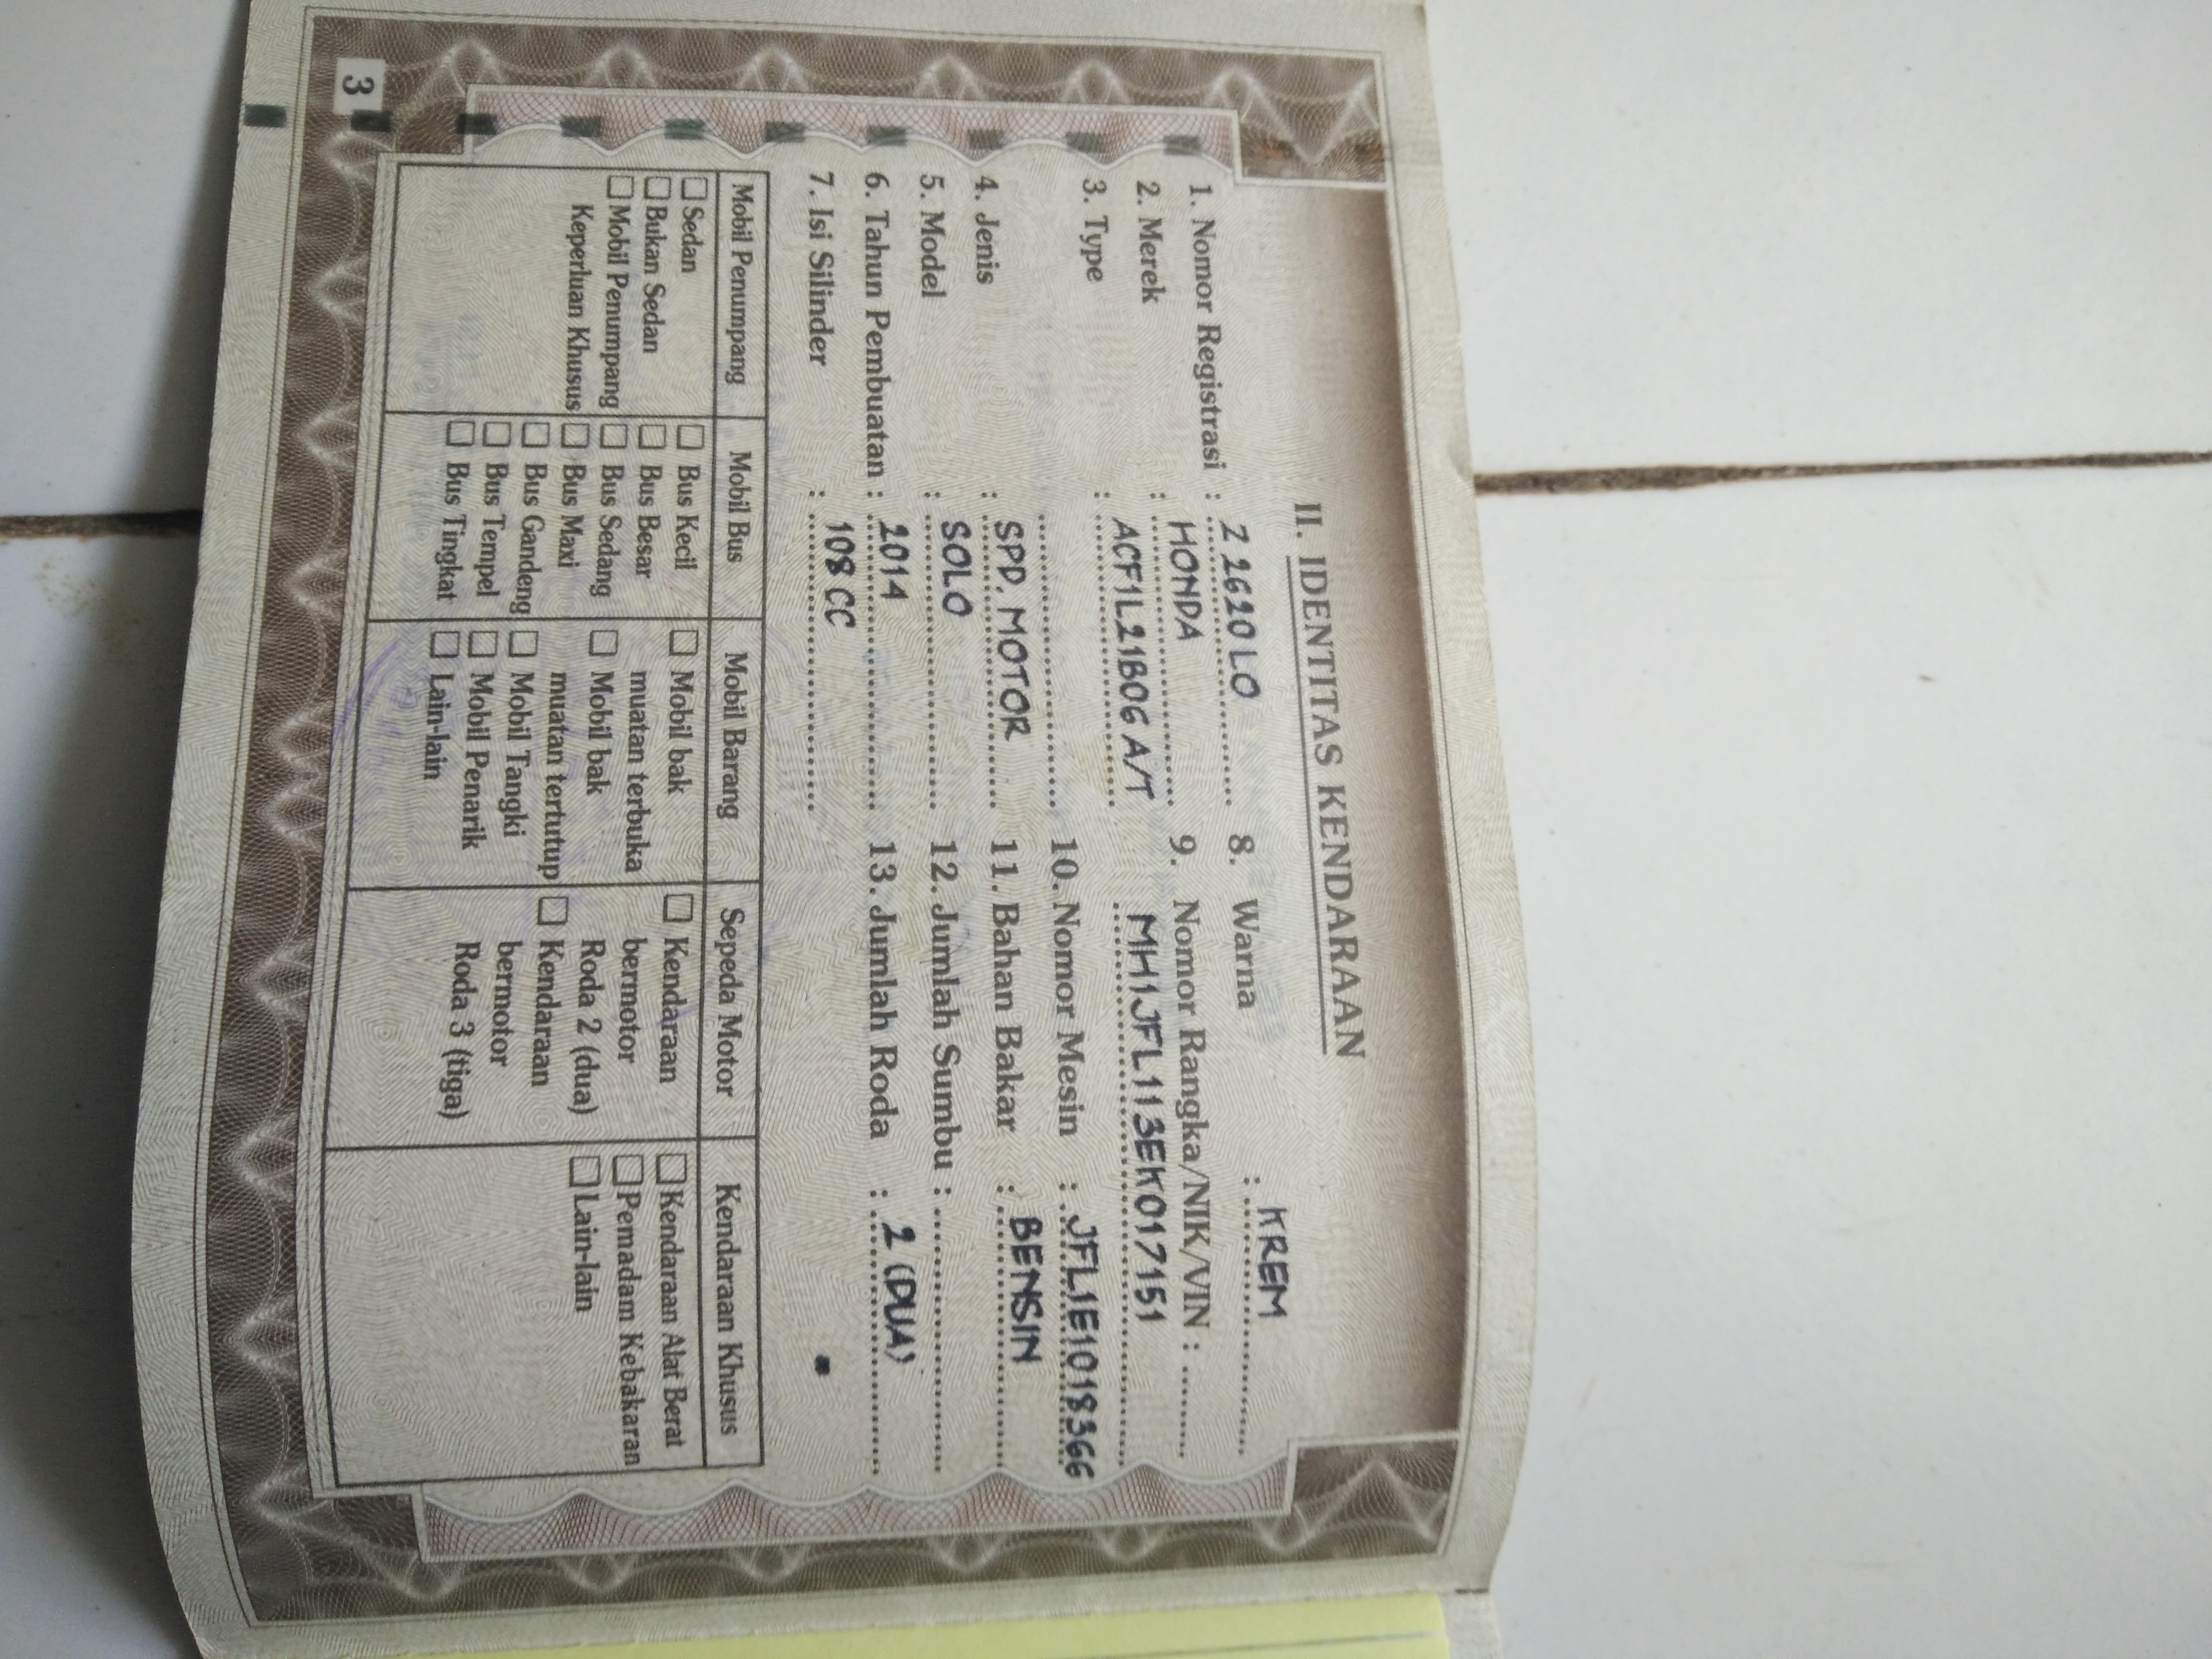 II. IDENTITAS KENDARAAN
1. Nomor Registrasi : Z 2620 LO
2. Merek : HONDA
3. Type : ACF1L21B06 A/T
4. Jenis : SPD. MOTOR
5. Model : SOLO
6. Tahun Pembuatan : 2014
7. Isi Silinder : 108 CC
8. Warna : KREM
9. Nomor Rangka/NIK/VIN :
MH1JFL113EK017151
10. Nomor Mesin : JFL1E1018366
11. Bahan Bakar : BENSIN
12. Jumlah Sumbu :
13. Jumlah Roda : 2 (DUA)
Mobil Penumpang
☐ Sedan
☐ Bukan Sedan
☐ Mobil Penumpang
Keperluan Khusus
Mobil Bus
☐ Bus Kecil
☐ Bus Besar
☐ Bus Sedang
☐ Bus Maxi
☐ Bus Gandeng
☐ Bus Tempel
☐ Bus Tingkat
Mobil Barang
☐ Mobil bak
muatan terbuka
☐ Mobil bak
muatan tertutup
☐ Mobil Tangki
☐ Mobil Penarik
☐ Lain-lain
Sepeda Motor
☐ Kendaraan
bermotor
Roda 2 (dua)
☐ Kendaraan
bermotor
Roda 3 (tiga)
Kendaraan Khusus
☐ Kendaraan Alat Berat
☐ Pemadam Kebakaran
☐ Lain-lain
3